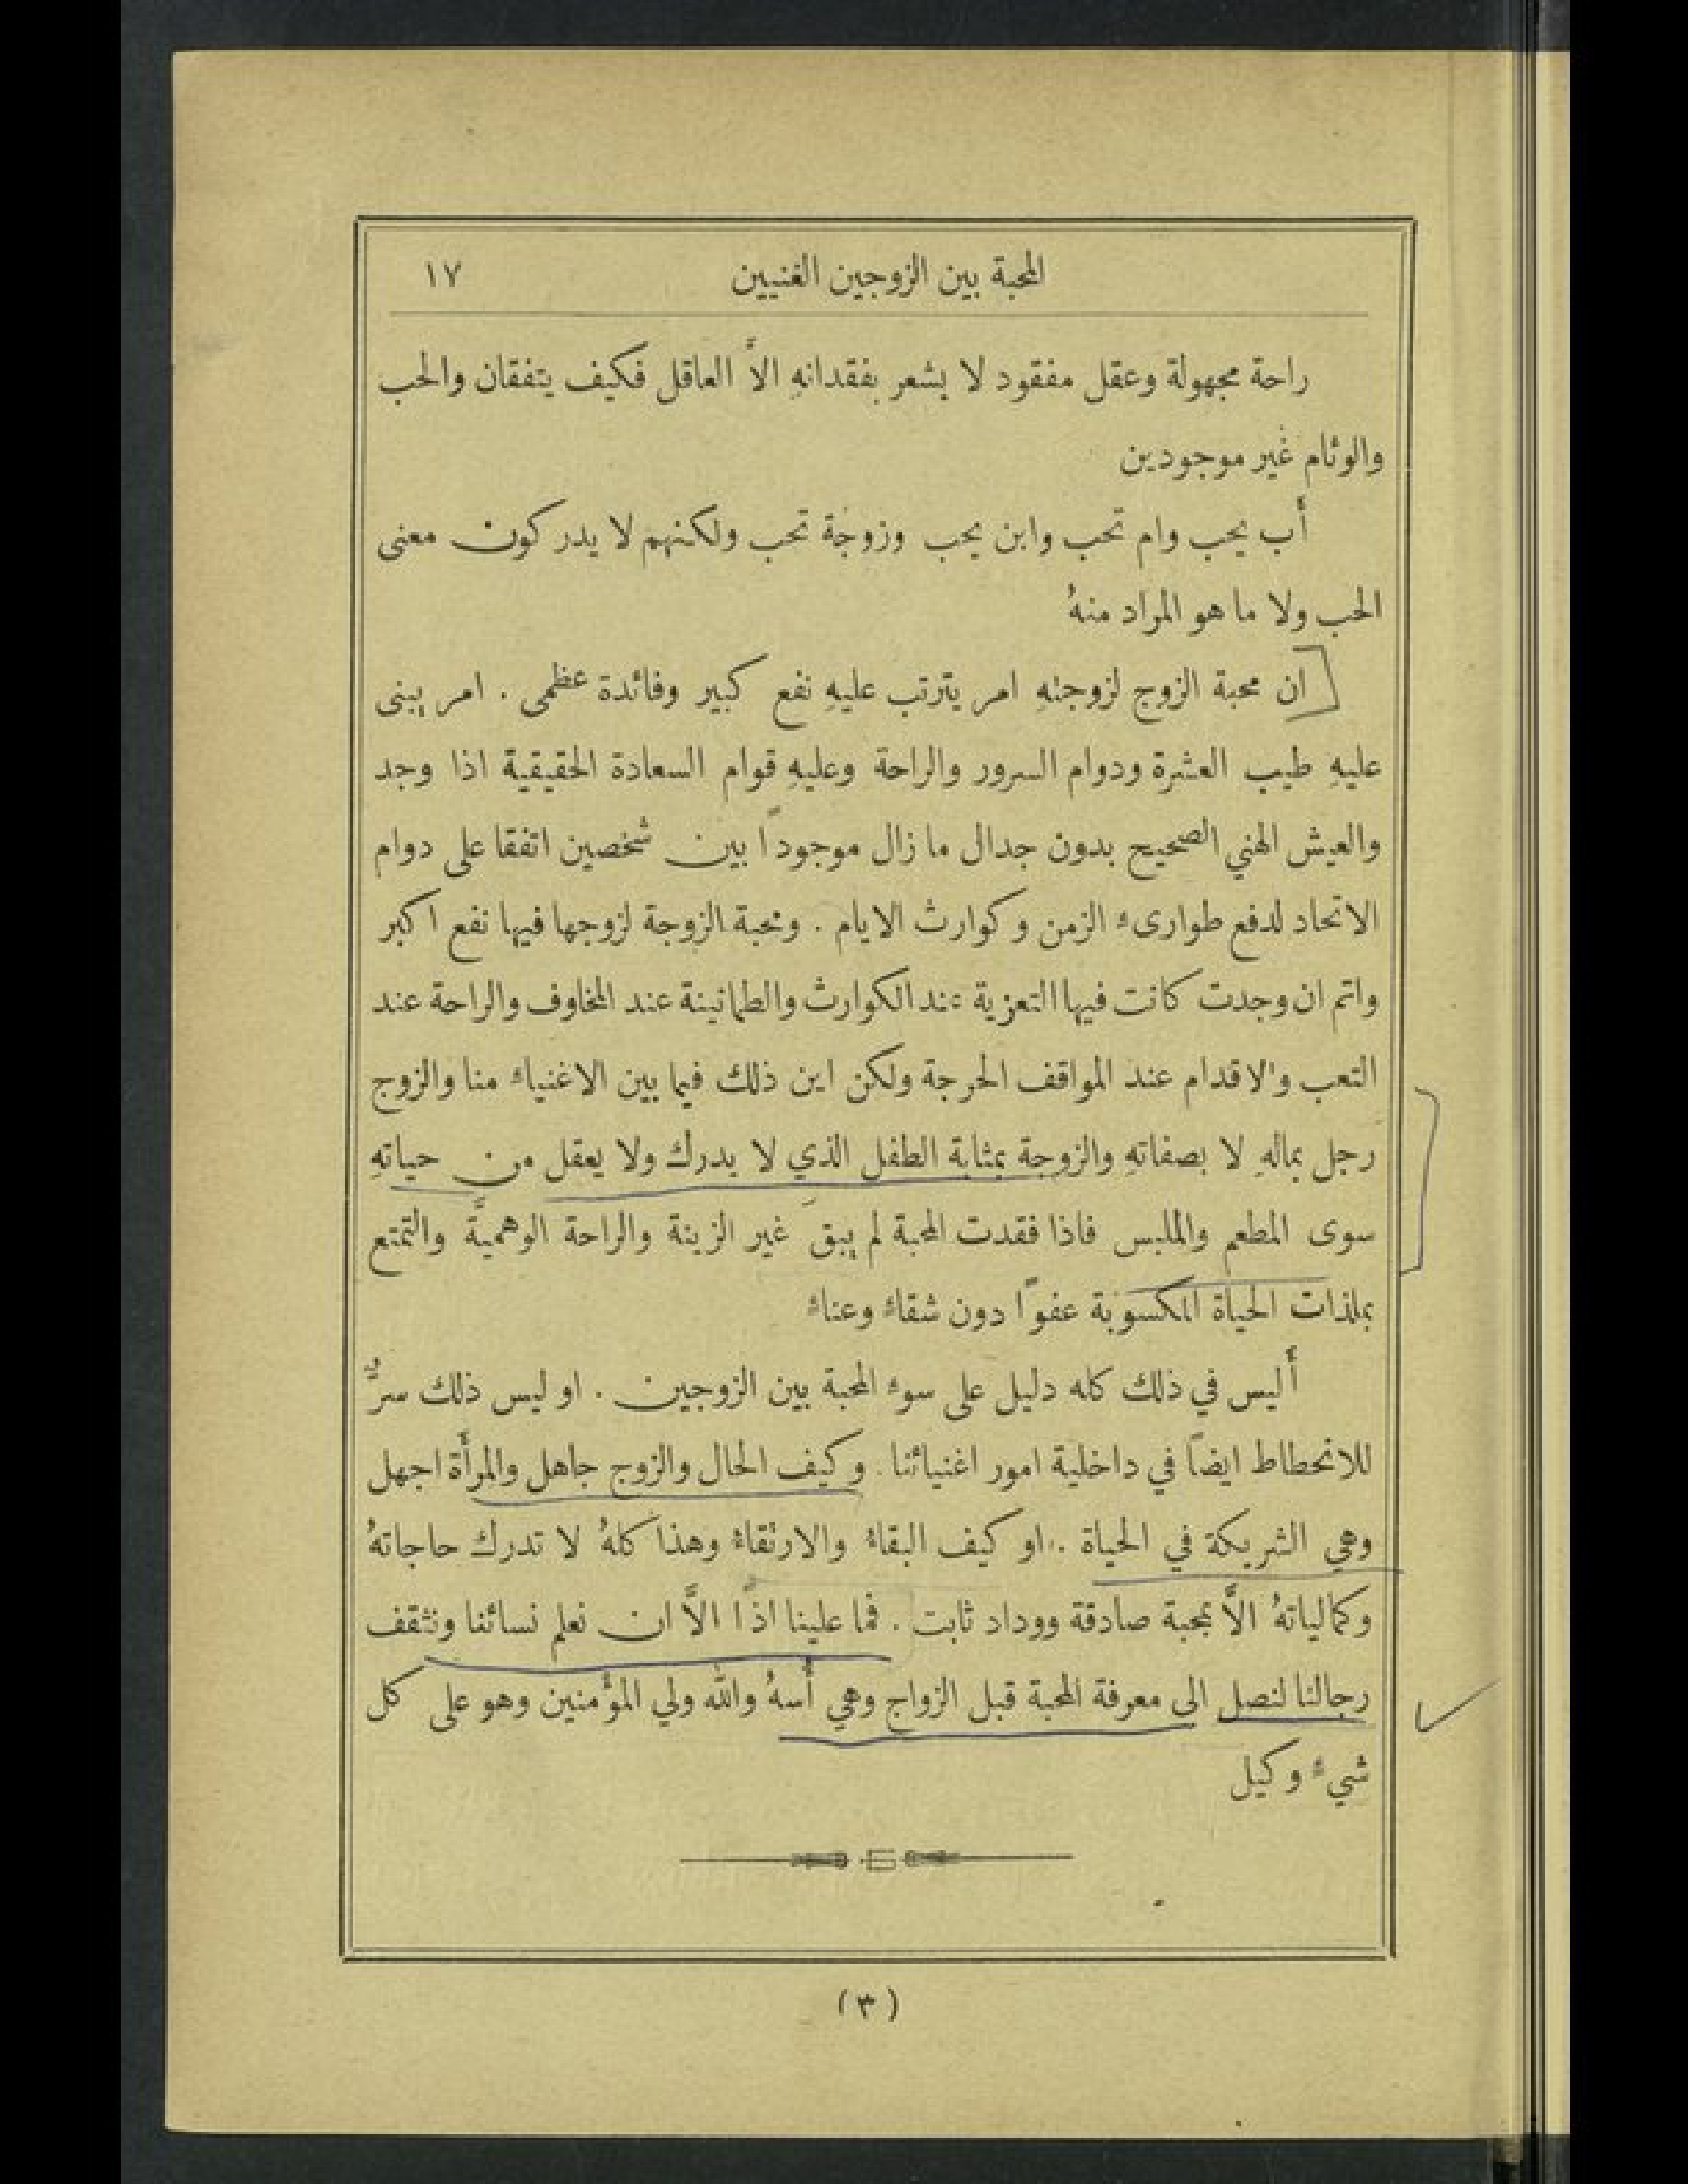 المحبة بين الزوجين الغنيين ١٧
راحة مجهولة وعقل مفقود لا يشعر بفقدانهِ الاَّ العاقل فكيف يتفقان والحب
والوئام غير موجودين
أب يحب وام تحب وابن يحب وزوجة تحب ولكنهم لا يدركون معنى
الحب ولا ما هو المراد منهُ
ان محبة الزوج لزوجتهِ امر يترتب عليهِ نفع كبير وفائدة عظمى . امر يبنى
عليهِ طيب العشرة ودوام السرور والراحة وعليهِ قوام السعادة الحقيقية اذا وجد
والعيش الهني الصحيح بدون جدال ما زال موجودًا بين شخصين اتفقا على دوام
الاتحاد لدفع طوارىء الزمن وكوارث الايام . ومحبة الزوجة لزوجها فيها نفع اكبر
واتم ان وجدت كانت فيها التعزية عند الكوارث والطمانينة عند المخاوف والراحة عند
التعب والاقدام عند المواقف الحرجة ولكن اين ذلك فيما بين الاغنياء منا والزوج
رجل بمالهِ لا بصفاتهِ والزوجة بمثابة الطفل الذي لا يدرك ولا يعقل من حياتهِ
سوى المطعم والملبس فاذا فقدت المحبة لم يبقَ غير الزينة والراحة الوهميَّة والتمتع
بملذات الحياة المكسوبة عفوًا دون شقاء وعناء
أليس في ذلك كله دليل على سوء المحبة بين الزوجين . او ليس ذلك سرٌّ
للانحطاط ايضًا في داخلية امور اغنيائنا . وكيف الحال والزوج جاهل والمرأة اجهل
وهي الشريكة في الحياة . او كيف البقاء والارتقاء وهذا كلهُ لا تدرك حاجاتهُ
وكمالياتهُ الاَّ بمحبة صادقة ووداد ثابت . فما علينا اذًا الاَّ ان نعلم نسائنا ونثقف
رجالنا لنصل الى معرفة المحبة قبل الزواج وهي أُسهُ والله ولي المؤمنين وهو على كل
شيء وكيل
(٣)